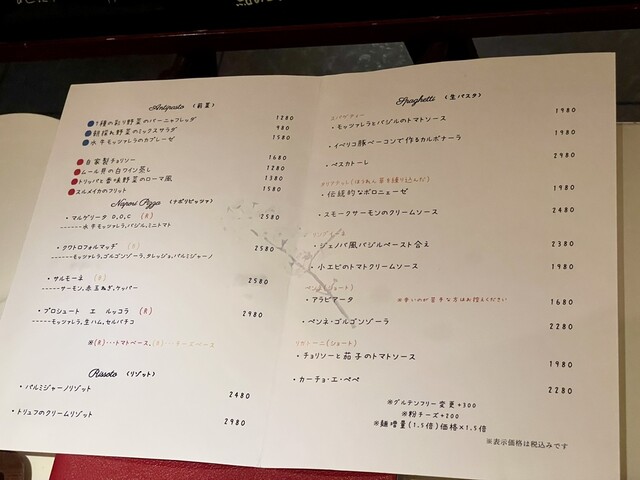 Antipasto (前菜)
7種の彩り野菜のバーニャフレッダ 1280
朝採れ野菜のミックスサラダ 980
水牛モッツァレラのカプレーゼ 1580
自家製チョリソー 1680
ムール貝の白ワイン蒸し 1280
トリッパと香味野菜のローマ風 1380
スルメイカのフリット 1580
Napori Pizza (ナポリピッツァ)
・マルゲリータ D,O,C (R) 2580
------水牛モッツァレラ,バジル,ミニトマト
・クワトロフォルマッヂ 2580
------モッツァレラ,ゴルゴンゾーラ,タレッジョ,パルミジャーノ
・サルモーネ 2580
-----サーモン,赤玉ねぎ,ケッパー
・プロシュート エ ルッコラ (R) 2980
-----モッツァレラ,生ハム,セルバチコ
※(R)・・・トマトベース, ・・・チーズベース
Rissoto (リゾット)
・パルミジャーノリゾット 2480
・トリュフのクリームリゾット 2980
Spaghetti (生パスタ)
・モッツァレラとバジルのトマトソース 1980
・イベリコ豚ベーコンで作るカルボナーラ 1980
・ペスカトーレ 2980
(ほうれん草を練り込んだ)
・伝統的なボロニェーゼ 1980
・スモークサーモンのクリームソース 2480
・ジェノバ風バジルペースト合え 2380
・小エビのトマトクリームソース 1980
ペンネ(ショート)
・アラビアータ ※辛いのが苦手な方はお控えください 1680
・ペンネ・ゴルゴンゾーラ 2280
リガトーニ(ショート)
・チョリソーと茄子のトマトソース 1980
・カーチョ・エ・ペペ 2280
※グルテンフリー変更+300
※粉チーズ+200
※麺増量(1.5倍)価格×1.5倍
※表示価格は税込みです